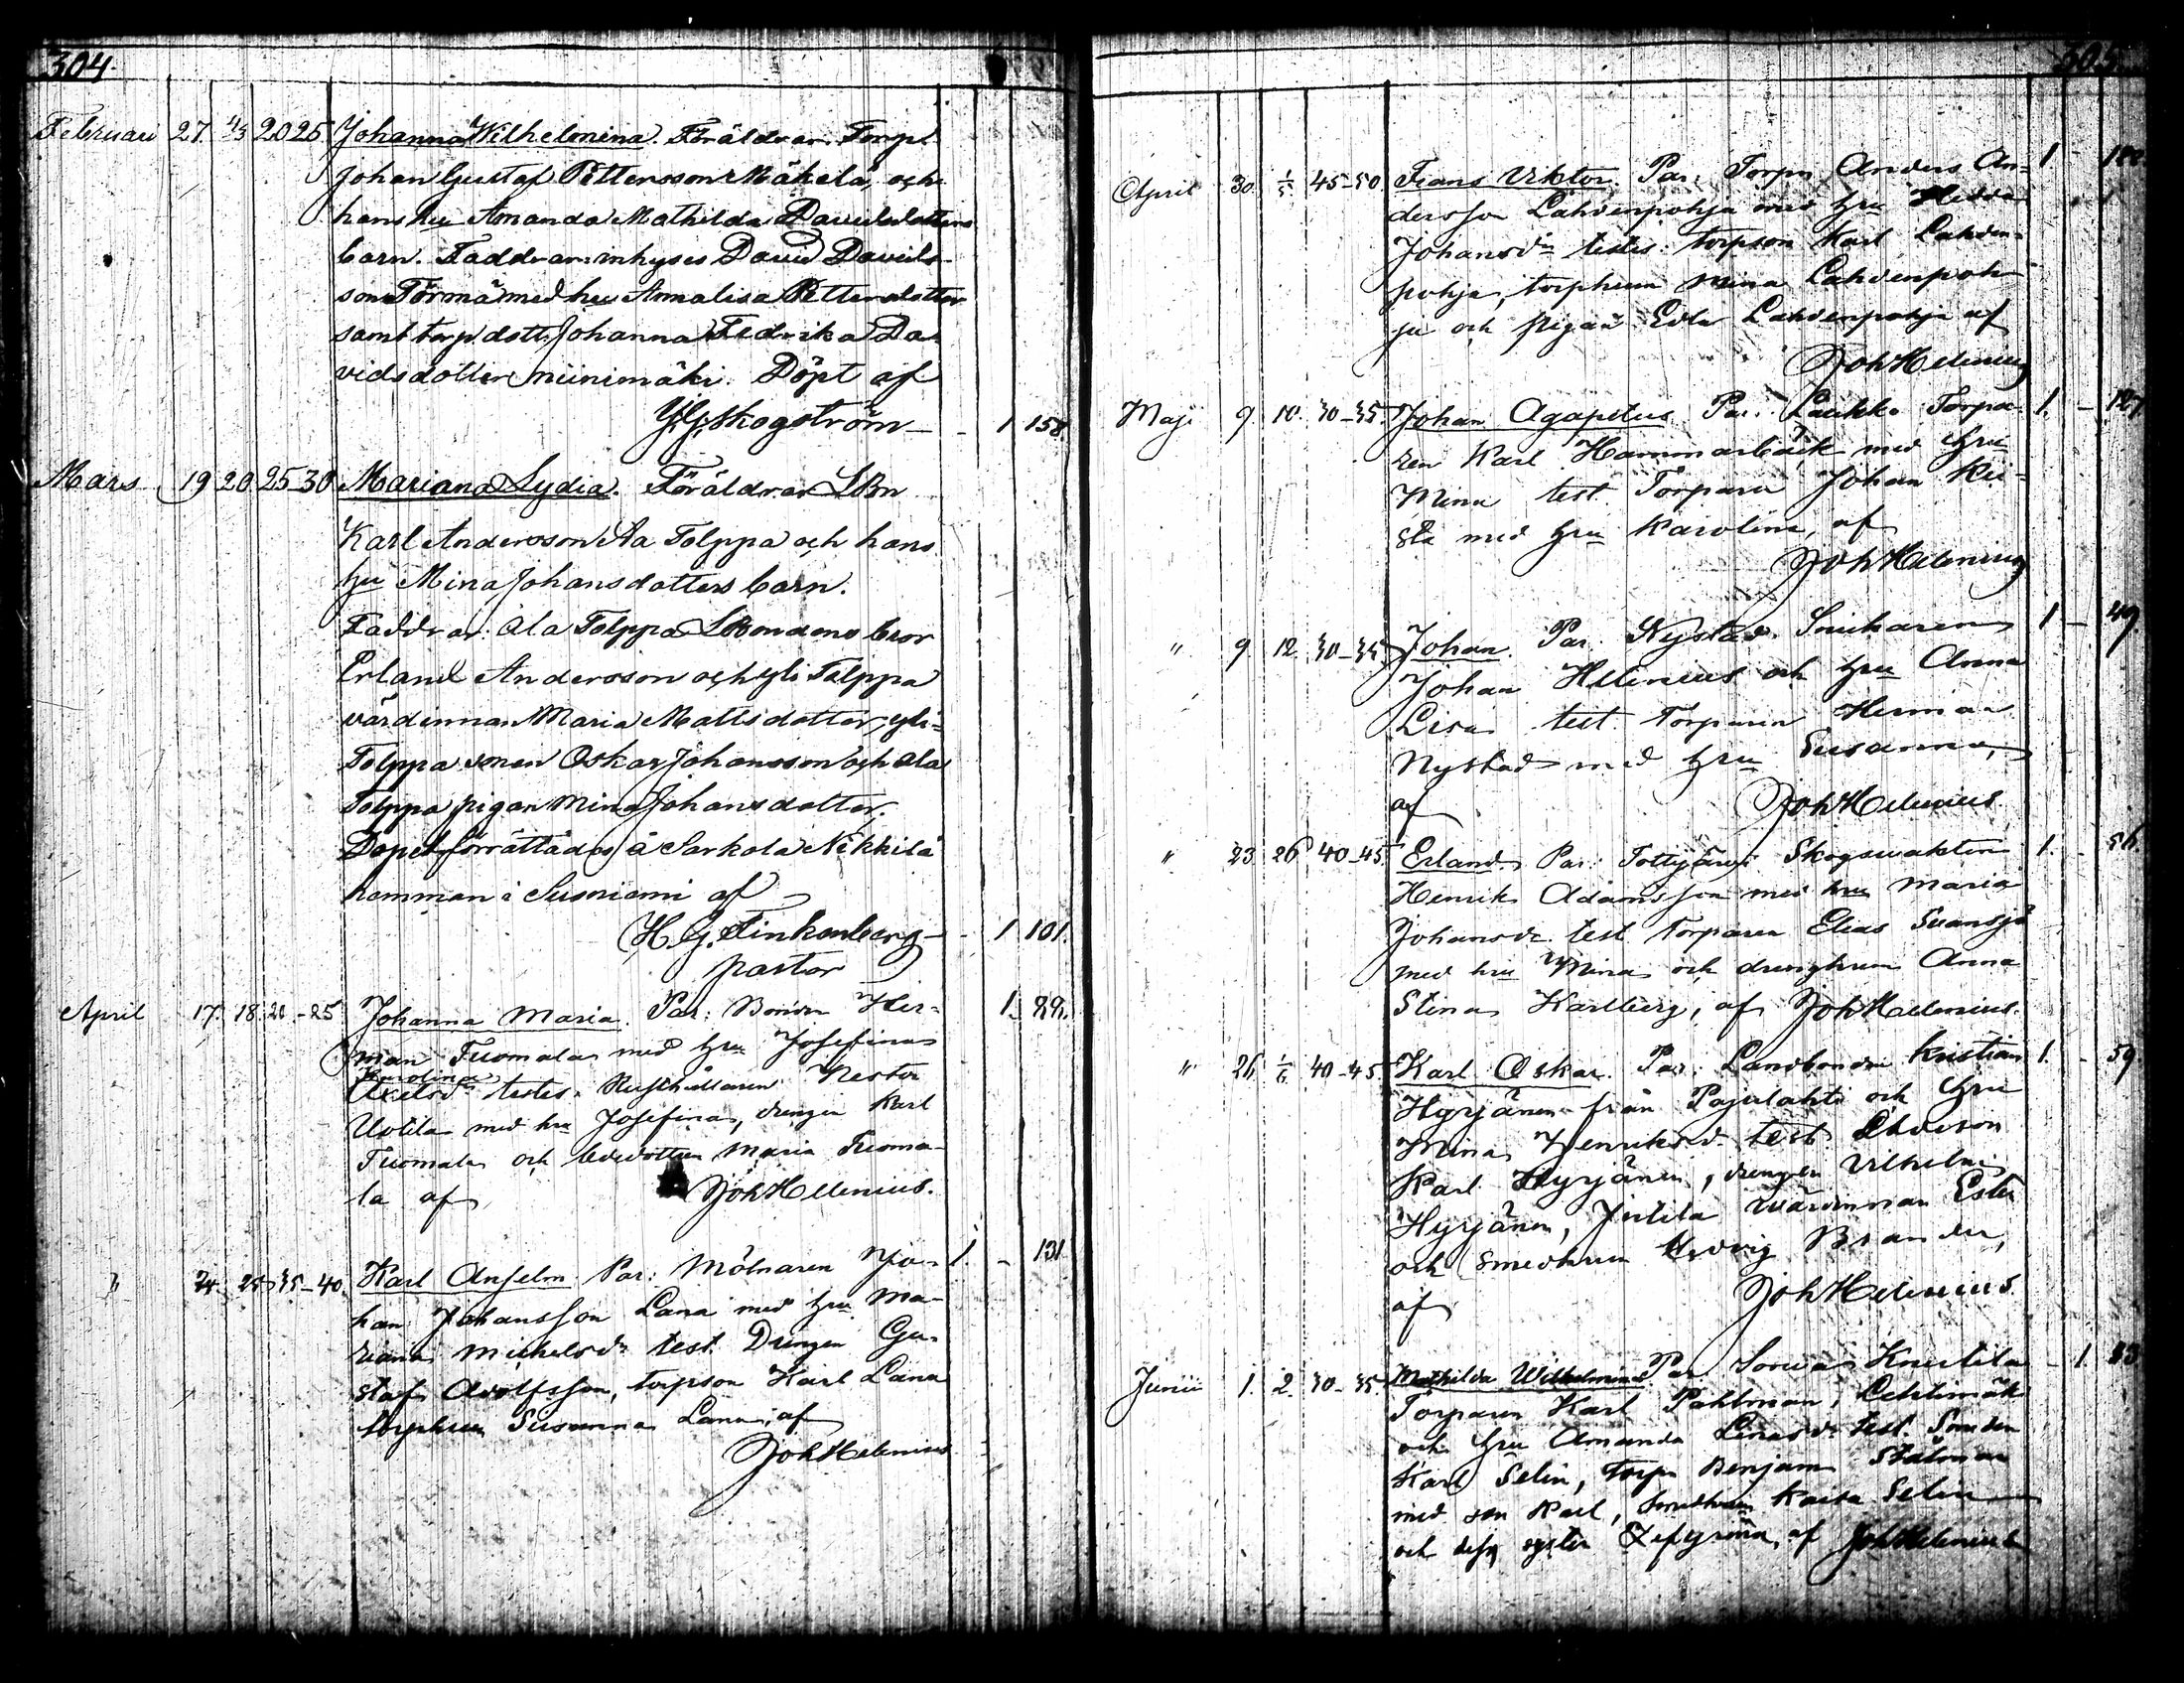 304
Februari 27. 1/3 20 25 Johanna Wilhelmina. Föräldrar: Torp.
Johan Gustaf Pettersson Mäkelä, och
hans hu Amanda Mathilda Davidsdotters
barn. Faddrar: inhyses David Davids-
son Törmä med hu Annalisa Pettersdotter
samt torp. dottr Johanna Fedrika Da-
vidsdotter niinimäki. Döpt af
Skogström — 1 158
Mars 19 20 25 30 Mariana Lydia. Föräldrar LBn
Karl Andersson Ala Tolppa och hans
hu Mina Johansdotters barn.
Faddrar: Ala Tolppa LBondens bror
Erland Andersson och yli Tolppa
värdinnan Maria Mattsdotter, yli-
Tolppa sonen Oskar Johansson och ala
Tolppa pigan Mina Johansdotter.
Dopet förrättades å Sarkola Nikkilä
hemman i Susniemi af
H. G. Finkenberg — 1 101.
pastor
April 17. 18. 20.-25 Johanna Maria. Par: Bonden Her- 1. 89.
man Tuomala med hru Josefina
Karolina
Axelsdr testes: Rusthållaren Nestor
Uotila med hru Josefina, drengen Karl
Tuomala och bdedottren Maria Tuoma-
la af Joh Helenius.
" 24. 25 35-40. Karl Anselm. Par: Mölnaren Jo- 1. - 131
han Johansson Lana med hru Ma-
riana Michelsdr test. Drengen Gu-
staf Adolfsson, torpson Karl Lana
torphun Susanna Lana, af
Joh Helenius
305.
April 30. 1/5 45-50 Frans Viktor. Par: Torpn Anders An- 1 -
dersson Lahdenpohja med hru Hedda
Johansdr testes: torpson Karl Lahden-
pohja, torphun Mina Lahdenpoh-
ja och pigan Edla Lahdenpohja af
Joh Helenius
Maji 9. 10. 30-35. Johan Agapetus Par: Laukko Torpa- 1. - 127
ren Karl Hammarbäck med hru
Mina test. Torparen Johan Ku-
sta med hru Karolina, af
Joh Helenius
" 9. 12. 30-35 Johan. Par. Nystad. Snickaren 1 - 49.
Johan Helenius och hru Anna
Lisa test. Torparen Herman
Nystad med hru Susanna,
af Joh Helenius
" 23 26 40-45 Erland. Par: Tottijärvi Skogsvakten 1. - 56
Henrik Adamsson med hru Maria
Johansdr. test. Torparen Elias Svansjö
med hru Mina och drenghun Anna
Stina Karlberg, af Joh Helenius.
" 26. 1/6 40-45. Karl Oskar. Par. Landbonden Kristian 1. - 59.
Hyrjänen från Pajulahti och hru
Mina Henriksdr. test
Karl Hyrjänen, drengen Vilhelm
Hyrjänen, Jutila värdinnan Ester
och Smedhun Hedvig Brander,
af Joh Helenius
Junii 1. 2. 30-35. Mathilda Wilhelmina Par. Knuutila - 1.
Torparen Karl Pahlman, Lehtimäk
och hru Amanda test. Smeden
Karl Selin, Torpn Benjam Stålman
med son Karl, Smedhun Kaisa Selin
och dess syster af Joh Helenius